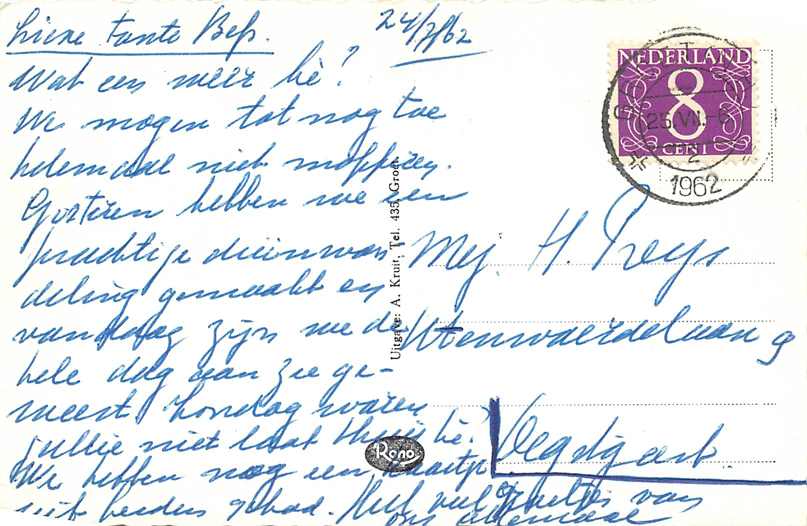 Lieve tante Bep.
24/7/62
Wat een weer hè?
We mogen tot nog toe
helemaal niet mopperen.
Gisteren hebben we een
prachtige duinwan
deling gemaakt en
vandaag zijn we de
hele dag aan zee ge-
weest. Zondag waren
jullie niet laat thuis hè?
We hebben nog een kaartje
uit gehad. Heel veel groetjes van
ons allemaal
NEDERLAND
8
CENT
25.VII.-6
1962
Uitgave: A. Kruit, Tel. 435, Groet.
Mej. H. Preys
9
Rono